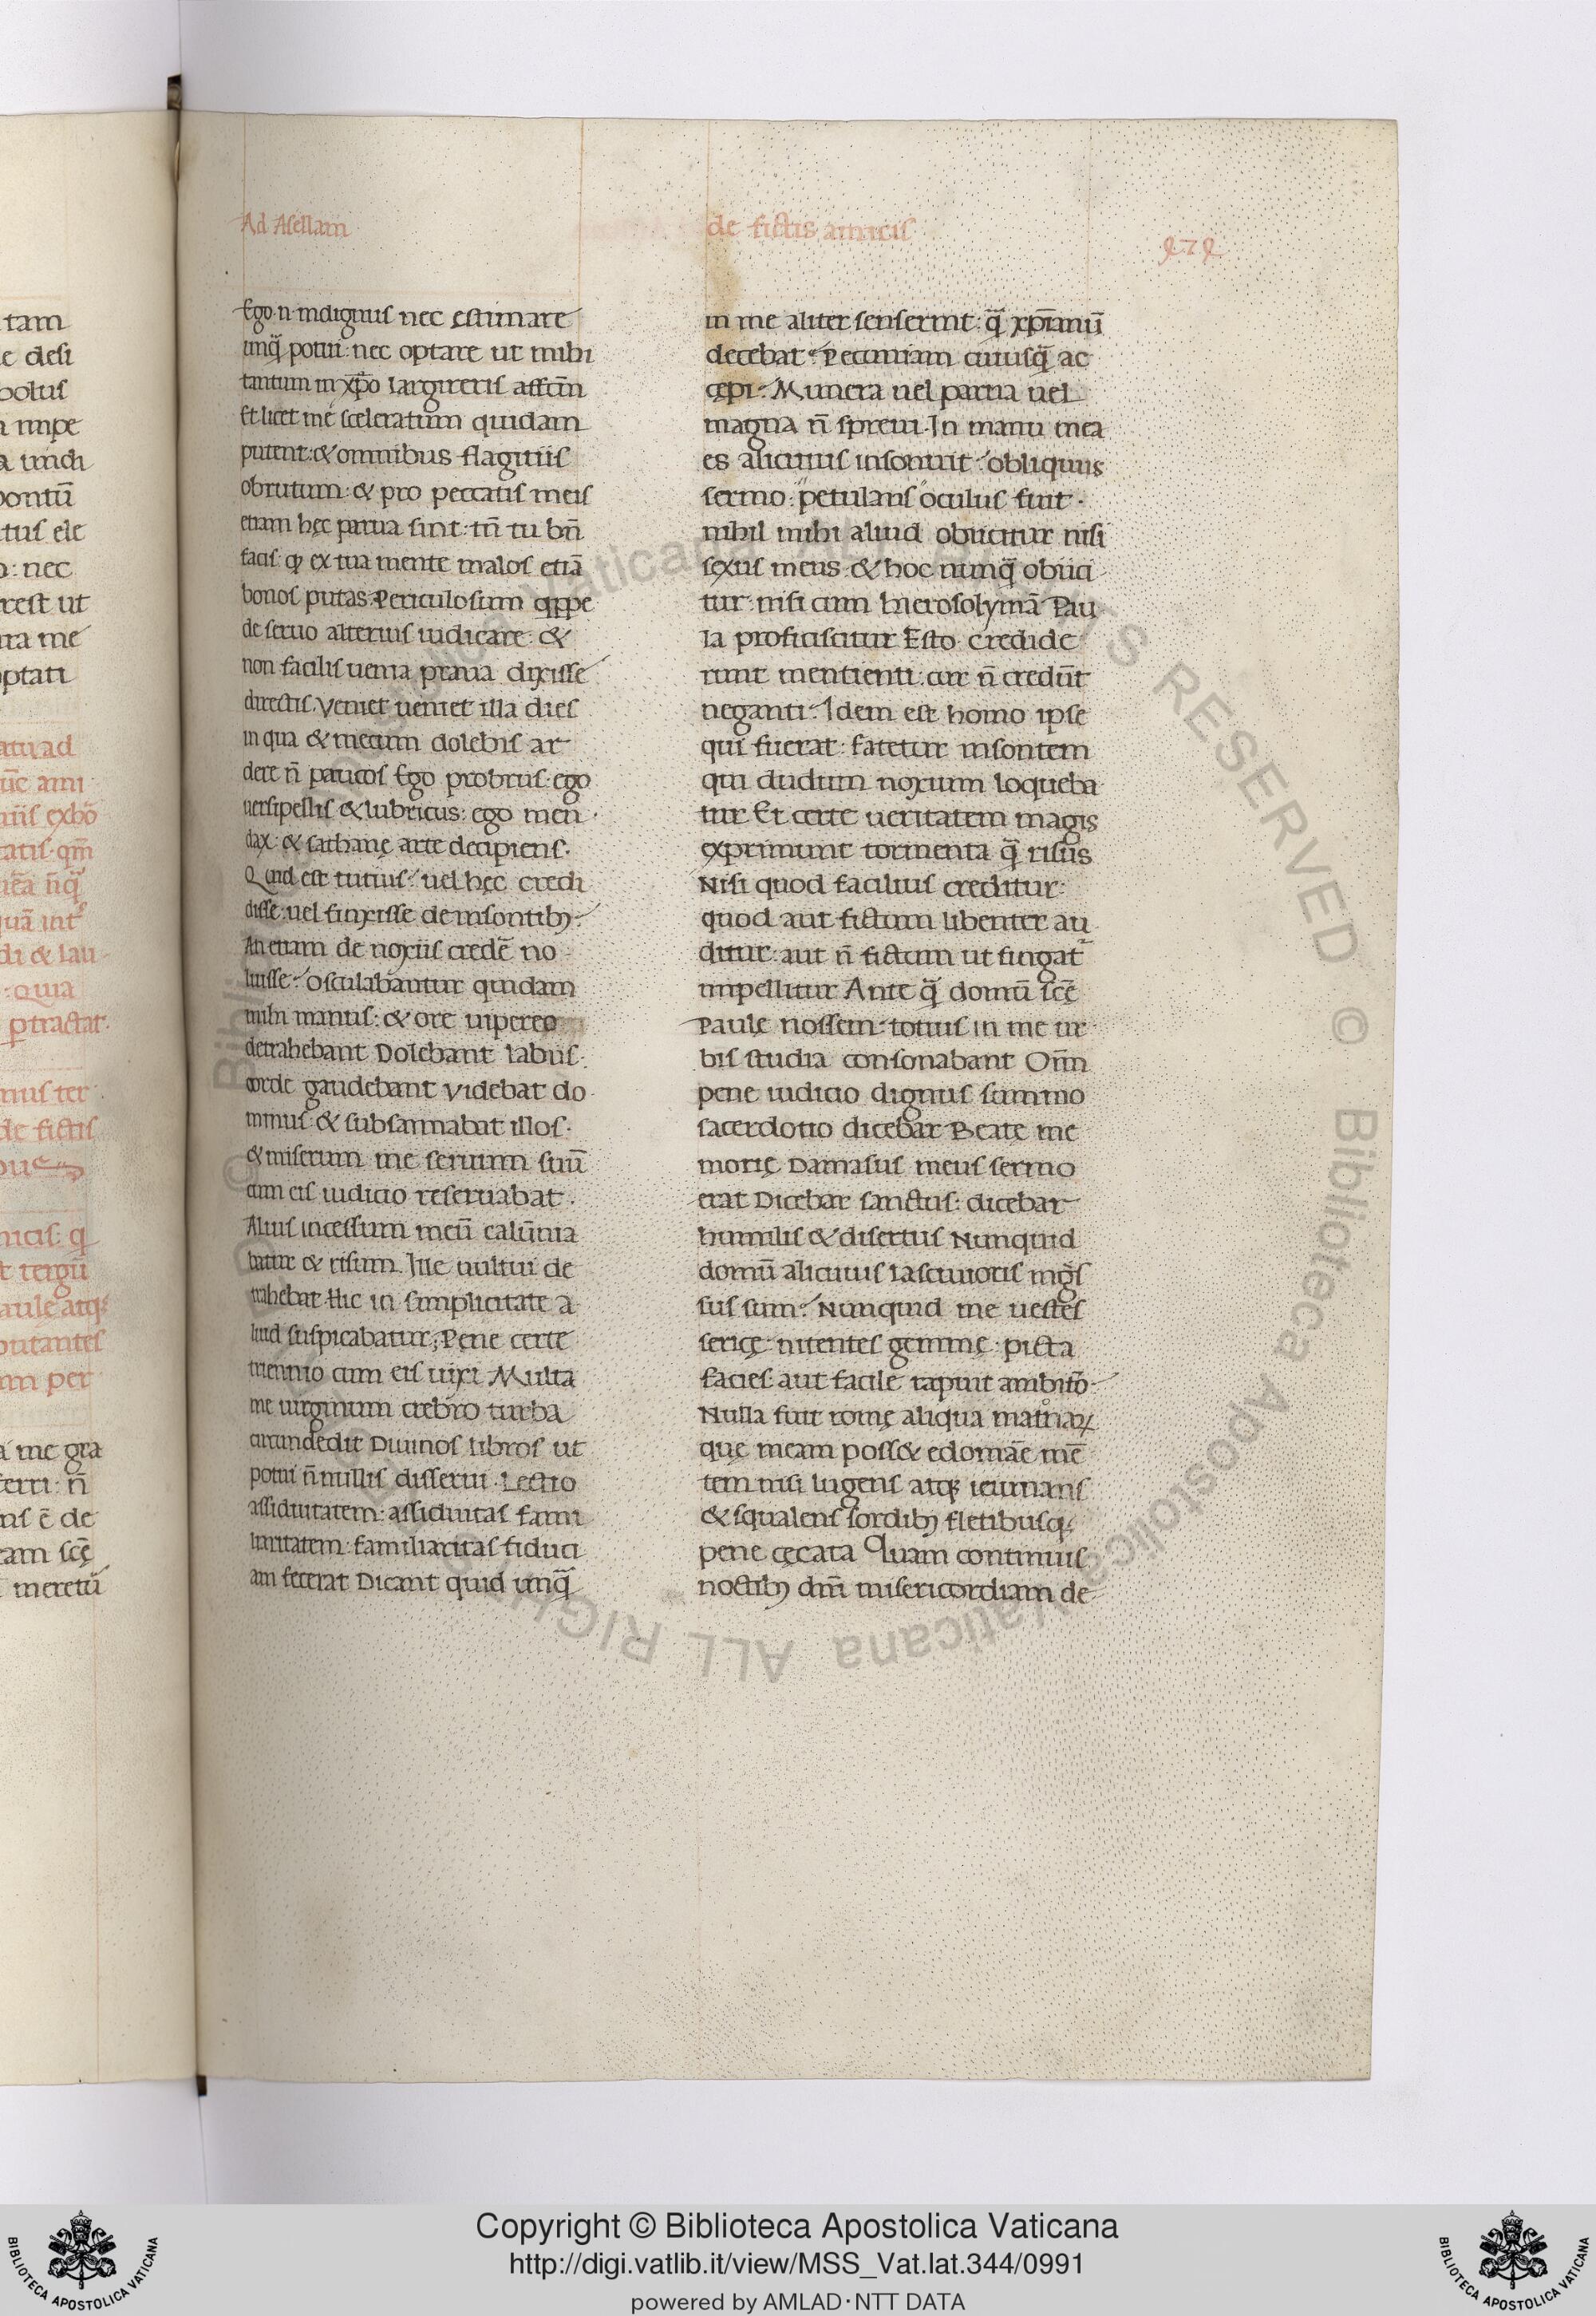 tam
e desi
bolus
a impe
a undi
pontū
tus ele
o: nec
rest ut
ra me
optati
atu ad
ūc ami
niis exbō
tatis qm̄
ieā n̄q̄
quā int
di & lau
: Quia
ptractat
mus ter
de fictis
niciſ: q
t tergū
aule atq;
putantes
m per
a me gra
ferri: n̄
nſ ē de
tam ſcę
meretū
Ad Aſellam
de fictis amicis
272
Ego n̄ indignuſ nec ęſtimare
unq̄ potui: nec optare ut mihi
tantum in xp̄o largireriſ affcū̄n
Et licet me ſceleratum quidam
putent: & omnibus flagitiiſ
obrutum: & pro peccatiſ meiſ
etiam hęc parua ſint: tn̄ tu bn̄
facis q ex tua mente maloſ etiā
bonoſ putaſ. Periculoſum qppe
de ſeruo alteriuſ iudicare: &
non faciliſ uenia praua dixiſſe
directiſ. Veniet ueniet illa dieſ
in qua & mecum dolebiſ ar
dere n̄ paucoſ Ego probruſ: ego
uerſipelliſ & lubricus: ego men
dax: & ſathanę arte decipienſ.
Quid eſt tutiuſ: uel hęc credi
diſſe: uel finxiſſe de inſontibꝫ:
An etiam de noxiiſ credē no
luiſſe: Oſculabantur quidam
mihi manuſ: & ore uipereo
detrahebant Dolebant labiiſ:
corde gaudebant Videbat do
minuſ & ſubſannabat illoſ.
& miſerum me ſeruum ſuū
cum eiſ iudicio reſeruabat.
Aliuſ inceſſum meū calūnia
batur & riſum. Ille uultui de
trahebat Hic in ſimplicitate a
liud ſuſpicabatur; Pene certe
triennio cum eiſ uixi Multa
me uirginum crebro turba
circundedit Diuinoſ libroſ ut
potui n̄nulliſ diſſerui. Lectio
aſſiduitatem: aſſiduitaſ fami
liaritatem: familiaritaſ fiduci
am fecerat Dicant quid unq̄
in me aliter ſenſerint: q̄ xp̄ianū
decebat: Pecuniam cuiuſq̄ ac
cępi: Munera uel parua uel
magna n̄ ſpreui. In manu mea
es alicuiuſ inſonuit: obliquuſ
ſermo: petulanſ oculuſ fuit.
nihil mihi aliud obiicitur niſi
ſexuſ meus: & hoc nunq̄ obiici
tur: niſi cum hieroſolymā Pau
la proficiſcitur Eſto credide
runt mentienti: cur n̄ credūt
neganti: Idem eſt homo ipſe
qui fuerat: fatetur inſontem
qui dudum noxium loqueba
tur Et certe ueritatem magis
exprimunt tormenta q̄ riſuſ
Niſi quod faciliuſ creditur:
quod aut fictum libenter au
ditur: aut n̄ fictum ut fingat
impellitur Ante q̄ domū ſcę
Paulę noſſem: totiuſ in me ur
biſ ſtudia conſonabant Om̄n
pene iudicio dignuſ ſummo
ſacerdotio dicebar Beatę me
morię Damaſuſ meuſ ſermo
erat Dicebar ſanctuſ: dicebar
humiliſ & diſertuſ Nunquid
domū alicuiuſ laſciuioriſ mgſ
ſuſ ſum: Nunquid me ueſteſ
ſericę: nitenteſ gemmę: picta
facieſ: aut facile rapuit ambitō
Nulla fuit romę aliqua matnaꝝ
que meam poſſ& edomāe mē
tem niſi lugenſ atq; ieiunanſ
& ſqualenſ ſordibꝫ fletibuſq;
pene cęcata Quam continuiſ
noctibꝫ dm̄ miſericordiam de
© Biblioteca Apostolica Vaticana ALL RIGHTS RESERVED © Biblioteca Apostolica Vaticana ALL RIGHTS
Copyright © Biblioteca Apostolica Vaticana
http://digi.vatlib.it/view/MSS_Vat.lat.344/0991
powered by AMLAD·NTT DATA
BIBLIOTECA APOSTOLICA VATICANA
BIBLIOTECA APOSTOLICA VATICANA